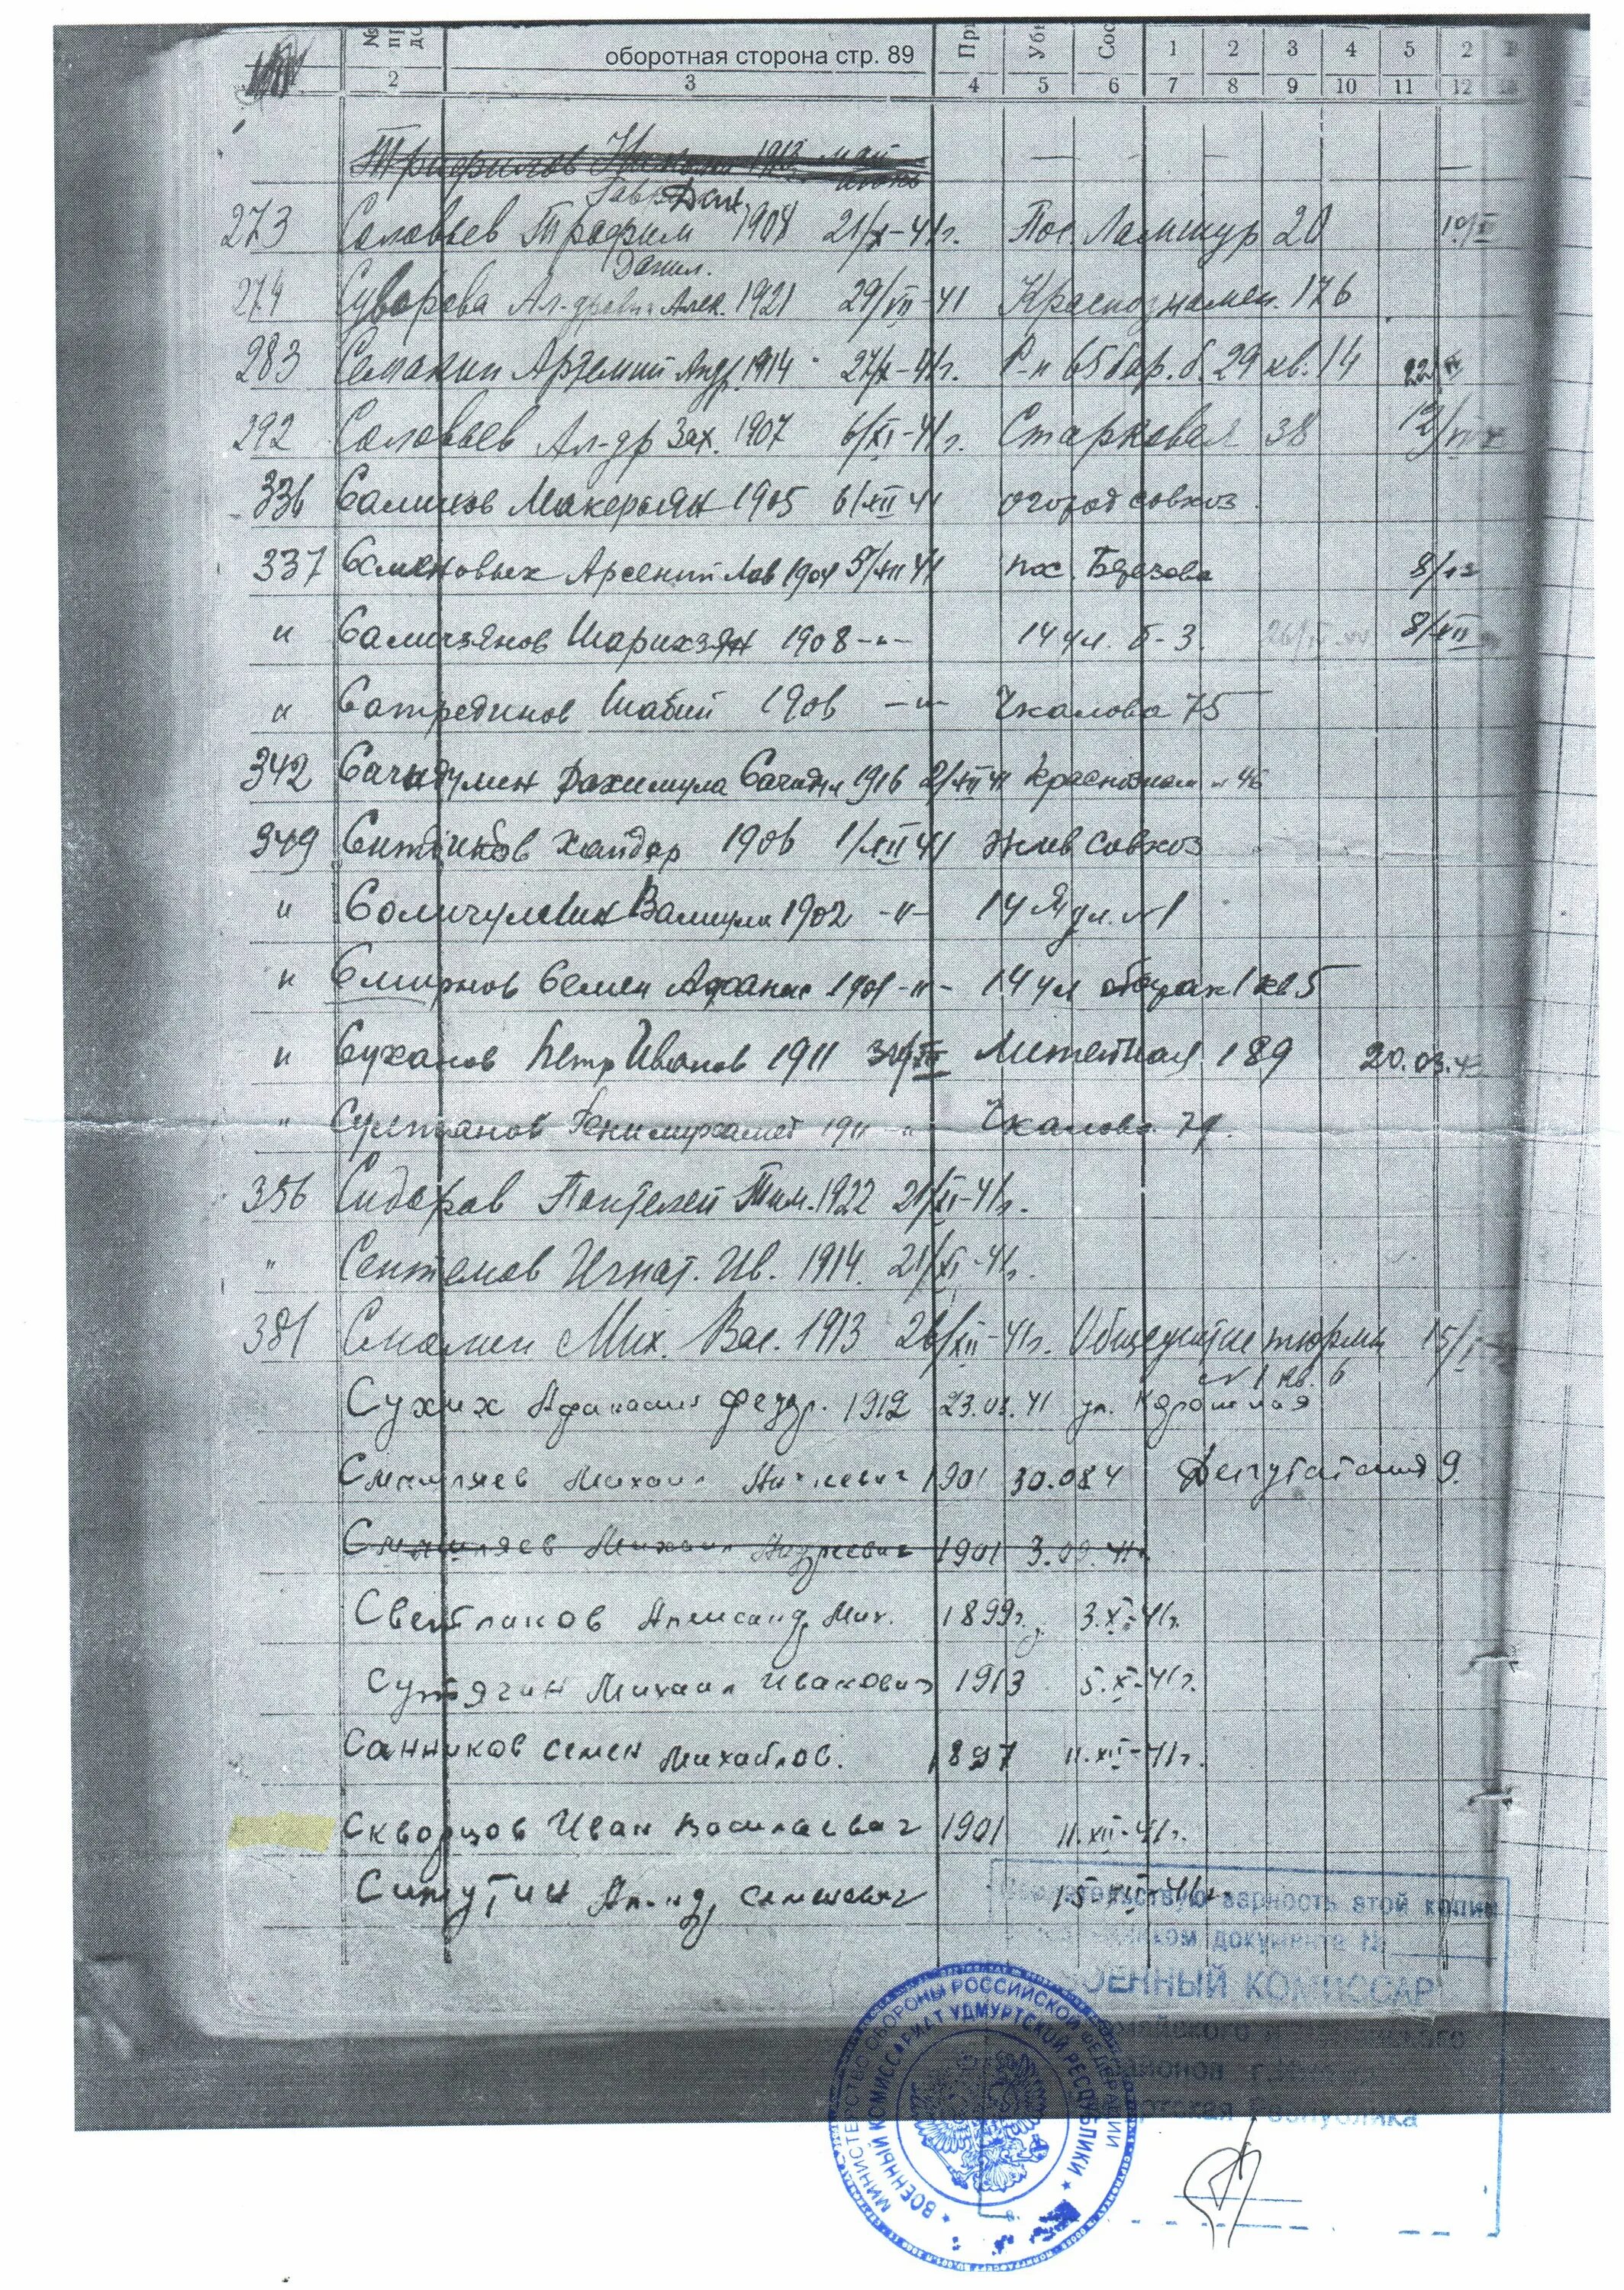 оборотная сторона стр. 89
№ При Убы Сос 1 2 3 4 5 2
2 3 4 5 6 7 8 9 10 11 12
Трифилов 1913 май
июнь
Гавр
273 Соловьев Трофим 1904 21/X-41г. Пос. Лаптур 20
Данил.
274 Суворова Ал-др Алек. 1921 29/VII-41 Краснознамен. 176
283 Семакин Артемий Андр. 1914 27/X-41г. Р-н 65 бар. б. 29 кв. 14 22/
292 Соловьев Ал-др Зах. 1907 6/XI-41г. Старковая 38 12/
336 Салихов Макерьян 1905 6/XII 41 огород совхоз
337 Семеновых Арсений Лав 1904 5/XII 41 пос. Березова 8/12
" Салигзянов Шарихзян 1908 -"- 14 ул. б-3. 8/XII
" Сатрединов Шабий 1906 -"- Чкалова 75
342 Рахимула 1916 2/XII 41 Краснознам 46
349 Ситдиков Хайдар 1906 1/XII 41 Жив Совхоз
" Валиула 1902 -"- 14 Я ул. №1
" Смирнов Семен Афанас 1901 -"- 14 ул барак 1 кв 5
" Суханов Петр Иванов 1911 Летейная 189 20.03.42
" Султанов 1911 " Чкалова 79.
356 Сидоров Пантелей Тим. 1922 21/XII-41г.
" Сентемов Игнат. Ив. 1914. 21/XI-41г.
381 Смолин Мих. Вас. 1913 26/XII-41г. Общежитие тюрьмы 15/I
№1 кв. 6
Сухих Афанасий Федор. 1912 23.08.41 ул.
Смышляев Михаил 1901 30.08 4 Депутатская 9.
Смышляев Михаил Андреевич 1901 3.09.41г
Светлаков Александ. Мих. 1899г. 3.XI-41г.
Сутягин Михаил Иванович 1913 5.XI-41г.
Санников Семен Михайлов. 1897 11.XII-41г.
Скворцов Иван Васильевич 1901 11.XII-41г.
Ситутин Ал-нд. Семенович 15 XII-41г
Свидетельствую верность этой копии
документа №
ВОЕННЫЙ КОМИССАР
районов г.
Удмуртская Республика
МИНИСТЕРСТВО ОБОРОНЫ РОССИЙСКОЙ ФЕДЕРАЦИИ
ВОЕННЫЙ КОМИССАРИАТ УДМУРТСКОЙ РЕСПУБЛИКИ